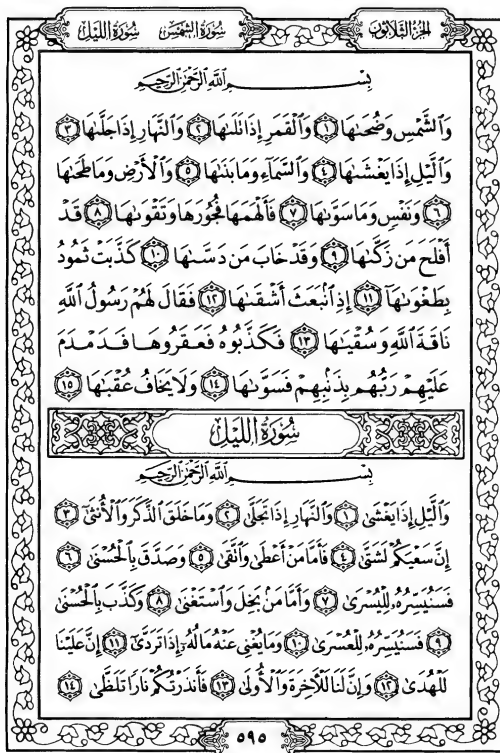 الجزء الثلاثون سورة الشمس سورة الليل
بِسْمِ اللَّهِ الرَّحْمَٰنِ الرَّحِيمِ
وَالشَّمْسِ وَضُحَىٰهَا ١ وَالْقَمَرِ إِذَا تَلَىٰهَا ٢ وَالنَّهَارِ إِذَا جَلَّىٰهَا ٣
وَالَّيْلِ إِذَا يَغْشَىٰهَا ٤ وَالسَّمَآءِ وَمَا بَنَىٰهَا ٥ وَالْأَرْضِ وَمَا طَحَىٰهَا
٦ وَنَفْسٍ وَمَا سَوَّىٰهَا ٧ فَأَلْهَمَهَا فُجُورَهَا وَتَقْوَىٰهَا ٨ قَدْ
أَفْلَحَ مَن زَكَّىٰهَا ٩ وَقَدْ خَابَ مَن دَسَّىٰهَا ١٠ كَذَّبَتْ ثَمُودُ
بِطَغْوَىٰهَآ ١١ إِذِ انۢبَعَثَ أَشْقَىٰهَا ١٢ فَقَالَ لَهُمْ رَسُولُ اللَّهِ
نَاقَةَ اللَّهِ وَسُقْيَىٰهَا ١٣ فَكَذَّبُوهُ فَعَقَرُوهَا فَدَمْدَمَ
عَلَيْهِمْ رَبُّهُم بِذَنۢبِهِمْ فَسَوَّىٰهَا ١٤ وَلَا يَخَافُ عُقْبَىٰهَا ١٥
سُورَةُ اللَّيْلِ
بِسْمِ اللَّهِ الرَّحْمَٰنِ الرَّحِيمِ
وَالَّيْلِ إِذَا يَغْشَىٰ ١ وَالنَّهَارِ إِذَا تَجَلَّىٰ ٢ وَمَا خَلَقَ الذَّكَرَ وَالْأُنثَىٰٓ ٣
إِنَّ سَعْيَكُمْ لَشَتَّىٰ ٤ فَأَمَّا مَنْ أَعْطَىٰ وَاتَّقَىٰ ٥ وَصَدَّقَ بِالْحُسْنَىٰ ٦
فَسَنُيَسِّرُهُۥ لِلْيُسْرَىٰ ٧ وَأَمَّا مَنۢ بَخِلَ وَاسْتَغْنَىٰ ٨ وَكَذَّبَ بِالْحُسْنَىٰ
٩ فَسَنُيَسِّرُهُۥ لِلْعُسْرَىٰ ١٠ وَمَا يُغْنِى عَنْهُ مَالُهُۥٓ إِذَا تَرَدَّىٰٓ ١١ إِنَّ عَلَيْنَا
لَلْهُدَىٰ ١٢ وَإِنَّ لَنَا لَلْءَاخِرَةَ وَالْأُولَىٰ ١٣ فَأَنذَرْتُكُمْ نَارًا تَلَظَّىٰ ١٤
٥٩٥